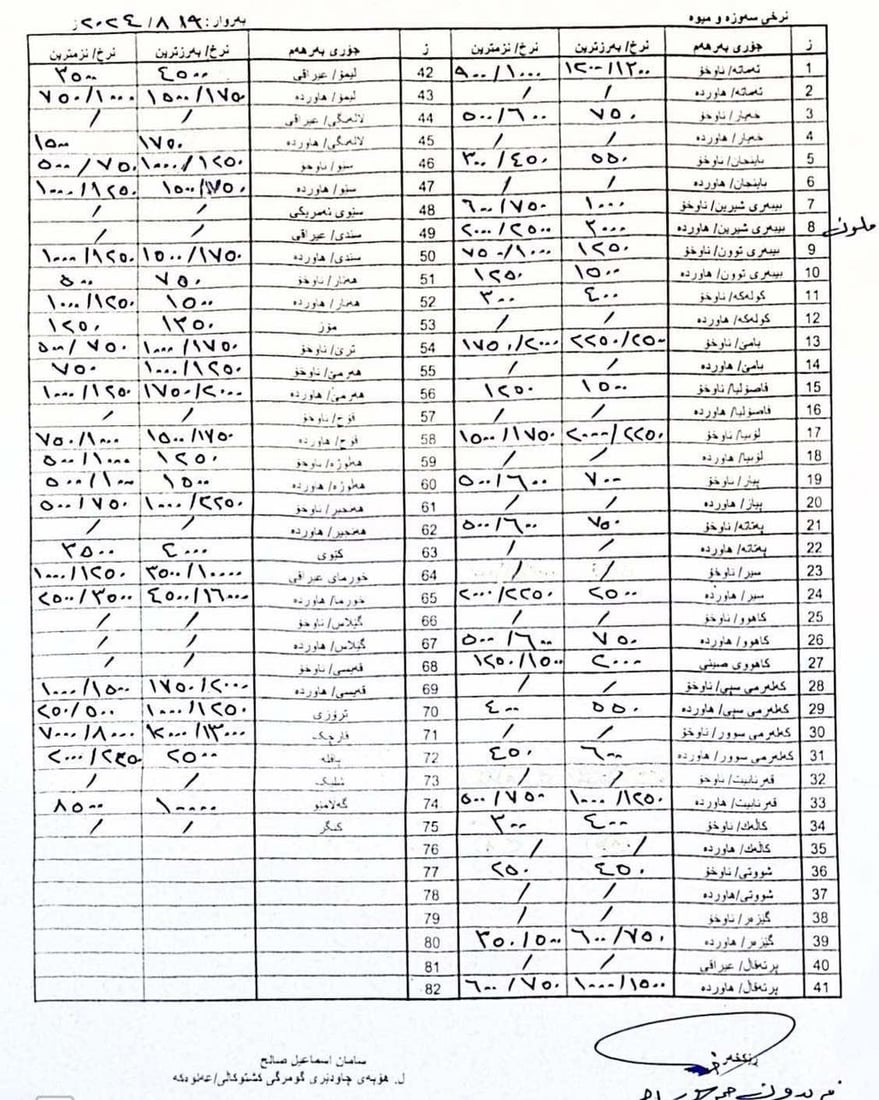 نرخی سەوزە و میوە
بەروار: ١٩ / ٨ / ٢٠٢٤ ز
ز جۆری بەرهەم نرخ/ بەرزترین نرخ/ نزمترین ز جۆری بەرهەم نرخ/ بەرزترین نرخ/ نزمترین
1 تەماتە/ ناوخۆ ١٢٠٠/١٣٠٠ ٩٠٠/١٠٠٠ 42 لیمۆ/ عیراقی ٤٥٠٠ ٣٥٠٠
2 تەماتە/ هاوردە / / 43 لیمۆ/ هاوردە ١٥٠٠/١٧٥٠ ٧٥٠/١٠٠٠
3 خەیار/ ناوخۆ ٧٥٠ ٥٠٠/٦٠٠ 44 لالەنگی/ عیراقی / /
4 خەیار/ هاوردە / / 45 لالەنگی/ هاوردە ١٧٥٠ ١٥٠٠
5 باینجان/ ناوخۆ ٥٥٠ ٣٠٠/٤٥٠ 46 سێو/ ناوخۆ ١٠٠٠/١٢٥٠ ٥٠٠/٧٥٠
6 باینجان/ هاوردە / / 47 سێو/ هاوردە ١٥٠٠/١٧٥٠ ١٠٠٠/١٢٥٠
7 بیبەری شیرین/ ناوخۆ ١٠٠٠ ٦٠٠/٧٥٠ 48 سێوی ئەمریکی / /
8 بیبەری شیرین/ هاوردە ٣٠٠٠ ٢٠٠٠/٢٥٠٠ 49 سندی/ عیراقی / /
ملون
9 بیبەری توون/ ناوخۆ ١٢٥٠ ٧٥٠/١٠٠٠ 50 سندی/ هاوردە ١٥٠٠/١٧٥٠ ١٠٠٠/١٢٥٠
10 بیبەری توون/ هاوردە ١٥٠٠ ١٢٥٠ 51 هەنار/ ناوخۆ ٧٥٠ ٥٠٠
11 کولەکە/ ناوخۆ ٤٠٠ ٣٠٠ 52 هەنار/ هاوردە ١٥٠٠ ١٠٠٠/١٢٥٠
12 کولەکە/ هاوردە / / 53 مۆز ١٣٥٠ ١٢٥٠
13 بامێ/ ناوخۆ ٢٢٥٠/٢٥٠٠ ١٧٥٠/٢٠٠٠ 54 ترێ/ ناوخۆ ١٠٠٠/١٧٥٠ ٥٠٠/٧٥٠
14 بامێ/ هاوردە / / 55 هەرمێ/ ناوخۆ ١٠٠٠/١٢٥٠ ٧٥٠
15 فاصۆلیا/ ناوخۆ ١٥٠٠ ١٢٥٠ 56 هەرمێ/ هاوردە ١٧٥٠/٢٠٠٠ ١٠٠٠/١٢٥٠
16 فاصۆلیا/ هاوردە / / 57 قۆخ/ ناوخۆ / /
17 لۆبیا/ ناوخۆ ٢٠٠٠/٢٢٥٠ ١٥٠٠/١٧٥٠ 58 قۆخ/ هاوردە ١٥٠٠/١٧٥٠ ٧٥٠/١٠٠٠
18 لۆبیا/ هاوردە / / 59 هەلوژە/ ناوخۆ ١٢٥٠ ٥٠٠/١٠٠٠
19 پیاز/ ناوخۆ ٧٠٠ ٥٠٠/٦٠٠ 60 هەلوژە/ هاوردە ١٥٠٠ ٥٠٠/١٠٠٠
20 پیاز/ هاوردە / / 61 هەنجیر/ ناوخۆ ١٠٠٠/٢٢٥٠ ٥٠٠/٧٥٠
21 پەتاتە/ ناوخۆ ٧٥٠ ٥٠٠/٦٠٠ 62 هەنجیر/ هاوردە / /
22 پەتاتە/ هاوردە / / 63 کێوی ٤٠٠٠ ٣٥٠٠
23 سیر/ ناوخۆ / / 64 خورمای عیراقی ٣٥٠٠/١٠٠٠٠ ١٠٠٠/١٢٥٠
24 سیر/ هاوردە ٢٥٠٠ ٢٠٠٠/٢٢٥٠ 65 خورما/ هاوردە ٤٥٠٠/١٦٠٠٠ ٢٥٠٠/٣٥٠٠
25 کاهوو/ ناوخۆ / / 66 گێلاس/ ناوخۆ / /
26 کاهوو/ هاوردە ٧٥٠ ٥٠٠/٦٠٠ 67 گێلاس/ هاوردە / /
27 کاهووی صینی ٢٠٠٠ ١٢٥٠/١٥٠٠ 68 قەیسی/ ناوخۆ / /
28 کەلەرمی سپی/ ناوخۆ / / 69 قەیسی/ هاوردە ١٧٥٠/٢٠٠٠ ١٠٠٠/١٥٠٠
29 کەلەرمی سپی/ هاوردە ٥٥٠ ٤٠٠ 70 ترۆزی ١٠٠٠/١٢٥٠ ٢٥٠/٥٠٠
30 کەلەرمی سوور/ ناوخۆ / / 71 قارچک ١٢٠٠٠/١٣٠٠٠ ٧٠٠٠/٨٠٠٠
31 کەلەرمی سوور/ هاوردە ٦٠٠ ٤٥٠ 72 پاقلە ٢٥٠٠ ٢٠٠٠/٢٣٥٠
32 قەرنابیت/ ناوخۆ / / 73 شلیک / /
33 قەرنابیت/ هاوردە ١٠٠٠/١٢٥٠ ٥٠٠/٧٥٠ 74 گەلامێو ١٠٠٠٠ ٨٥٠٠
34 کالەك/ ناوخۆ ٤٠٠ ٣٠٠ 75 کنگر / /
35 کالەك/ هاوردە / / 76
36 شووتی/ ناوخۆ ٤٥٠ ٢٥٠ 77
37 شووتی/هاوردە / / 78
38 گێزەر/ ناوخۆ / / 79
39 گێزەر/ هاوردە ٦٠٠/٧٥٠ ٣٥٠/٥٠٠ 80
40 پرتەقال/ عیراقی / / 81
41 پرتەقال/ هاوردە ١٠٠٠/١٥٠٠ ٦٠٠/٧٥٠ 82
رێکخەر
سامان اسماعیل صالح
ل. هۆبەی چاودێری گومرگی کشتوکاڵی/عەلوەکە